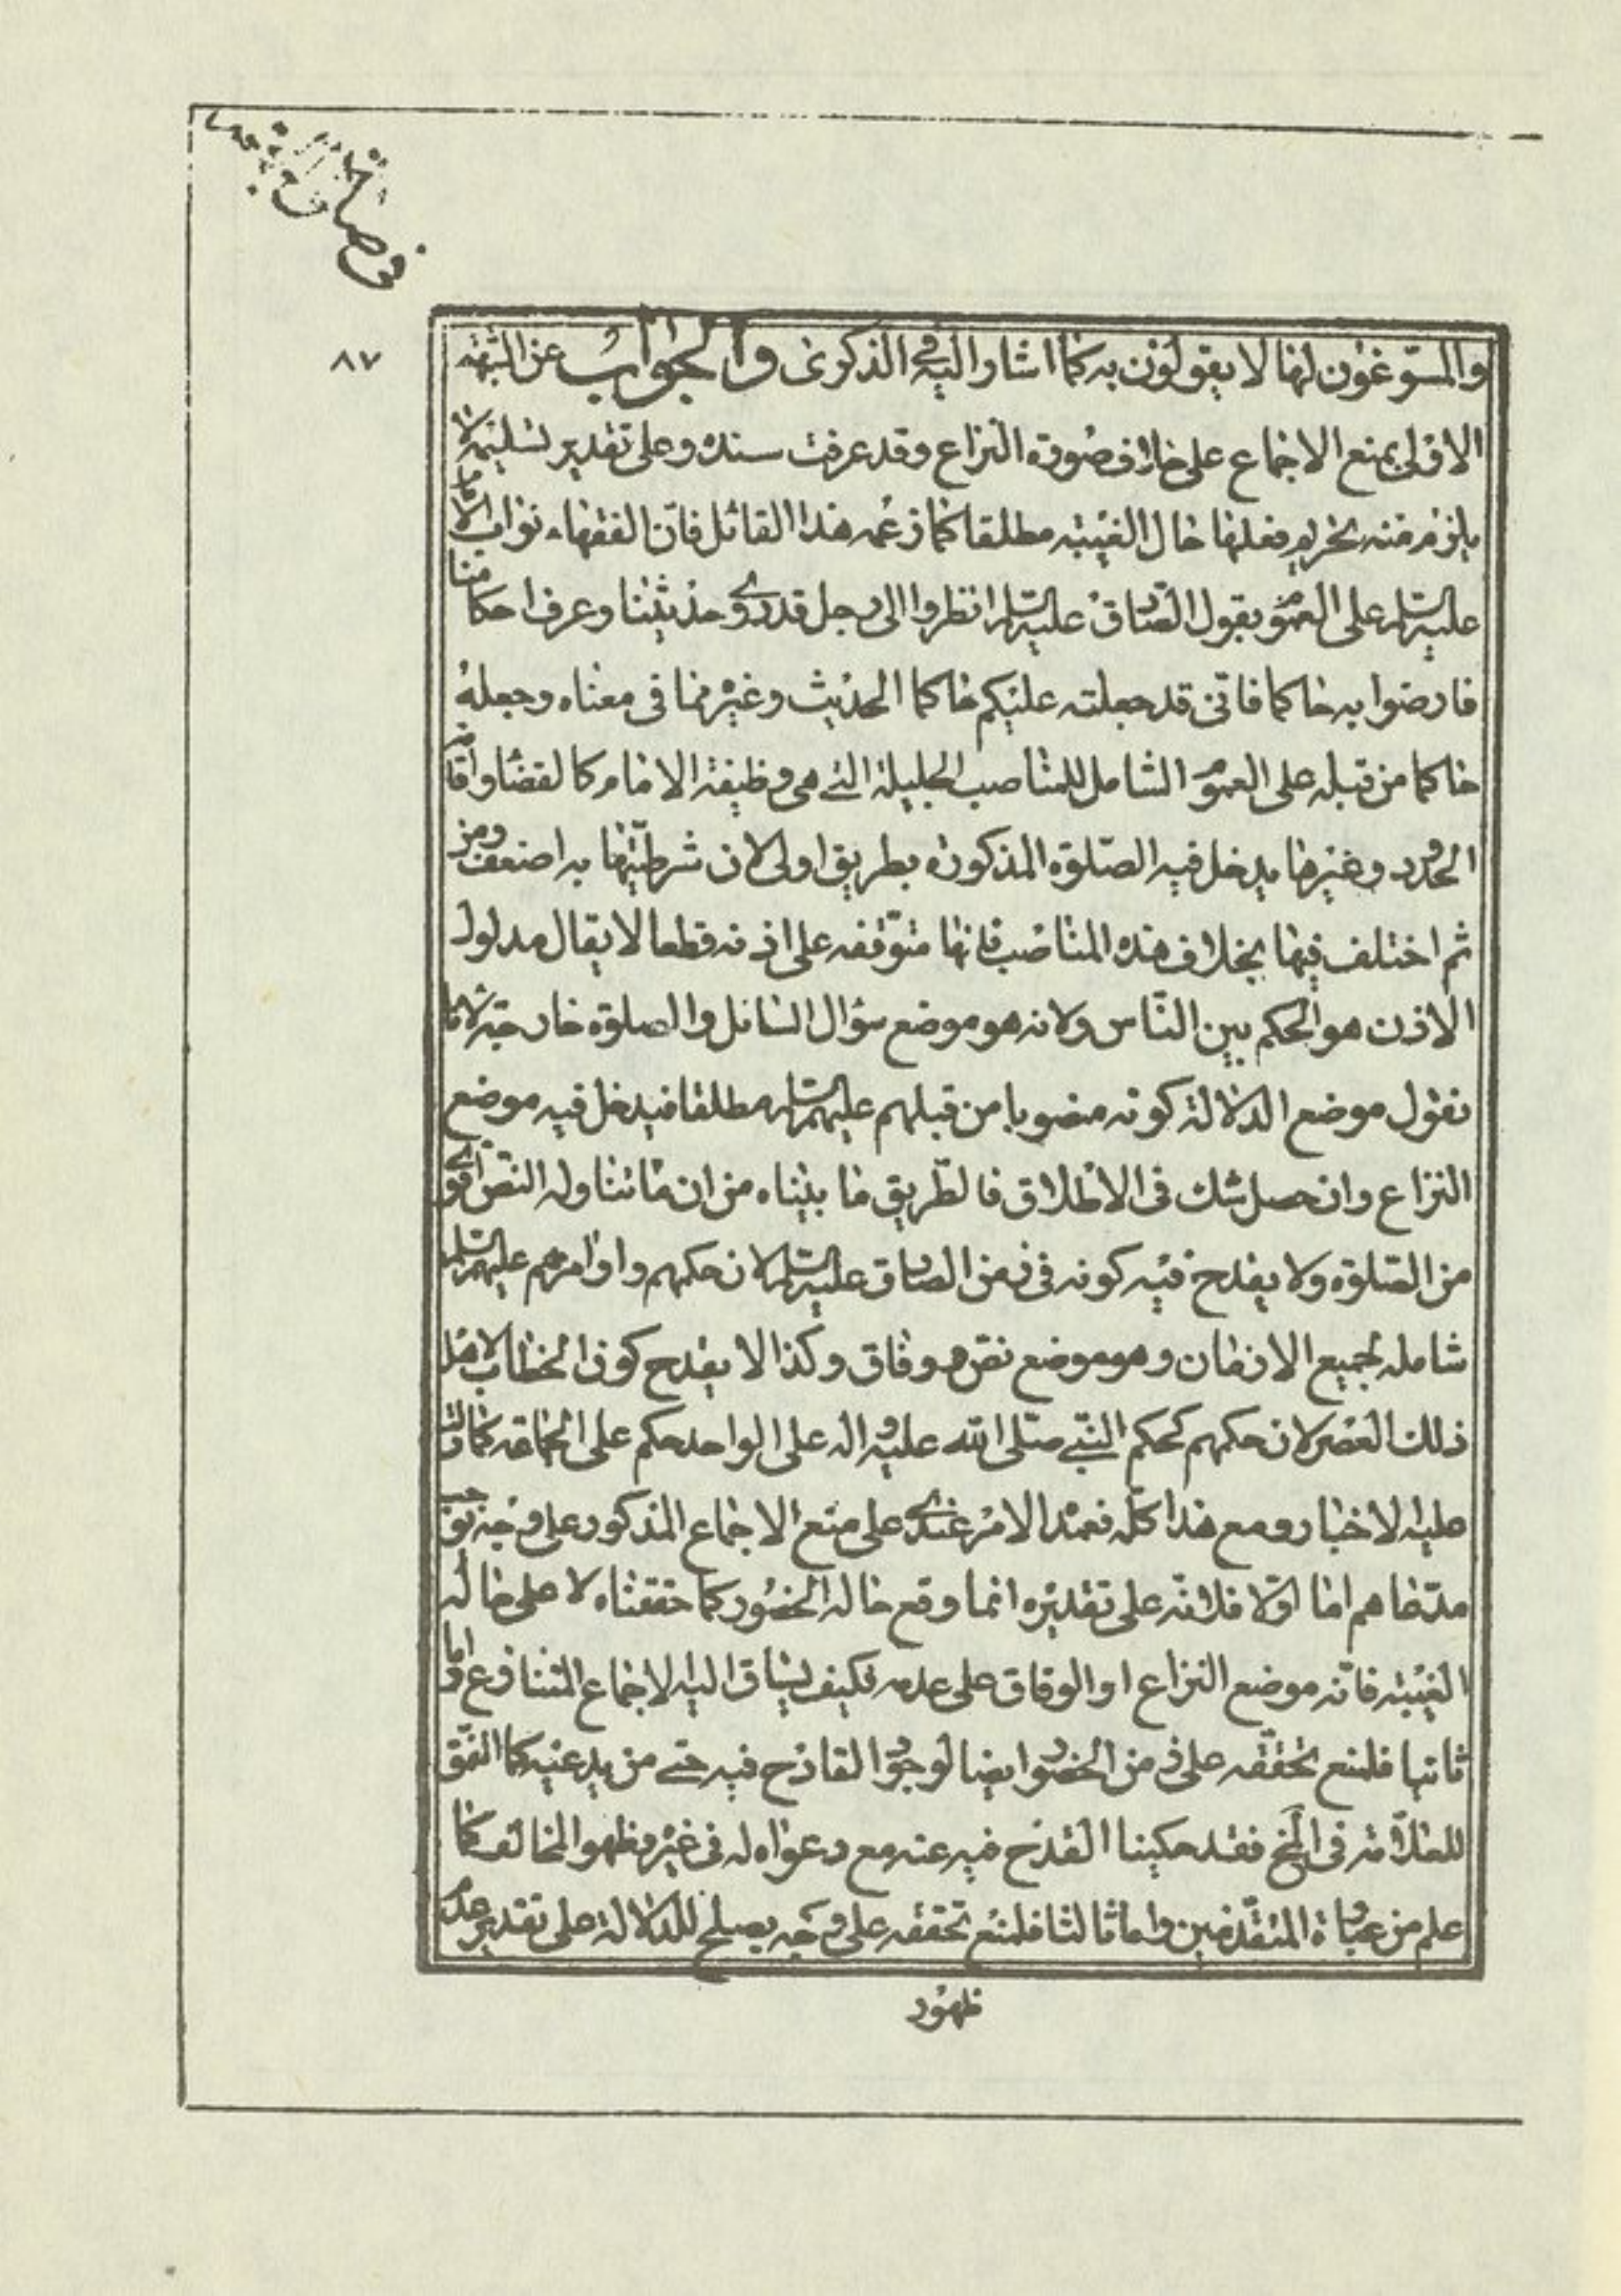 في صلوة الجمعة
٨٧
والمسوّغون لها لا يقولون به كما اشار اليه في الذكرى والجواب عن الشبهة
الاولى بمنع الاجماع على خلاف صورة النزاع وقد عرفت سنده وعلى تقدير تسليمه لا
يلزم منه تحريم فعلها حال الغيبة مطلقا كما زعمه هذا القائل فانّ الفقهاء نواب الامام
عليه السلم على العموم بقول الصّادق عليه السلم انظروا الى رجل قد روى حديثنا وعرف احكامنا
فارضوا به حاكما فانّى قد جعلته عليكم حاكما الحديث وغيره مما فى معناه وجعله
حاكما من قبله على العموم الشامل للمناصب الجليلة التى هى وظيفة الامام كالقضا واقامة
الحدود وغيرها يدخل فيه الصّلوة المذكورة بطريق اولى لان شرطيّتها به اضعف ومن
ثم اختلف فيها بخلاف هذه المناصب فانها متوّقفه على اذنه قطعا لا يقال مدلول
الاذن هو الحكم بين النّاس ولانه هو موضع سؤال السائل والصلوة خارجة لانا
نقول موضع الدلالة كونه منصوبا من قبلهم عليهم السلم مطلقا فيدخل فيه موضع
النزاع وان حصل شك فى الاطلاق فالطّريق ما بيناه من ان ما تناوله النصّ اقوى
من الصّلوة ولا يقدح فيه كونه فى زمن الصادق عليه السلم لان حكمهم واوامرهم عليهم السلم
شامله لجميع الازمان وهو موضع نصّ ووفاق وكذا لا يقدح كون الخطاب لاهل
ذلك العصر لان حكمهم كحكم النبىّ صلى الله عليه وآله على الواحد حكم على الجماعة كما دلت
عليه الاخبار ومع هذا كلّه فعمدة الامر عندى على منع الاجماع المذكور على وجه يوجب
مدّعاهم اما اوّلا فلانّه على تقديره انما وقع حالة الحضور كما حققناه لا على حالة
الغيبة فانّه موضع النزاع او الوفاق على عدمه فكيف يساق اليه الاجماع المتنازع واما
ثانيا فلمنع تحقّقه على زمن الحضور ايضا لوجود القادح فيه حتى من يدعيه كما اتفق
للعلاّمة فى المخ فقد حكينا القدح فيه عنه مع دعواه له فى غيره وظهور المخالف كما
علم من عبارة المتقدّمين واما ثالثا فلمنع تحققه على وجه يصلح للدلالة على تقدير عدم
ظهور